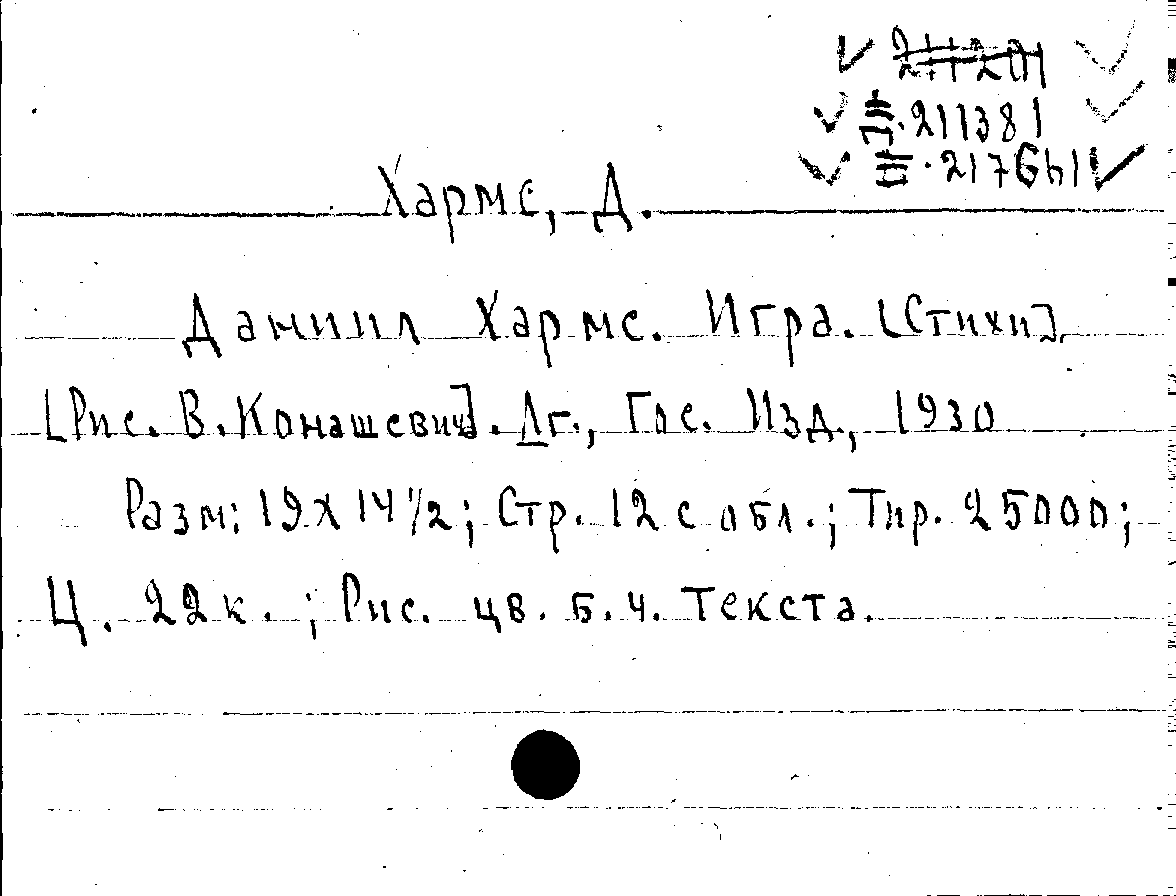 211381
Хармс, Д.
Даниил Хармс. Игра. [Стихи].
[Рис. В. Конашевич]. Лг., Гос. Изд., 1930
Разм: 19 х 14 1/2; Стр. 12 с обл.; Тир. 25000;
Ц. 22 к.; Рис. цв. б. ч. текста.